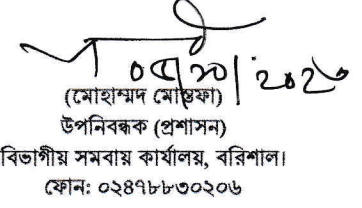 (মোহাম্মদ মোস্তফা)
উপনিবন্ধক (প্রশাসন)
বিভাগীয় সমবায় কার্যালয়, বরিশাল।
ফোন: ০২৪৭৮৮৩০২০৬